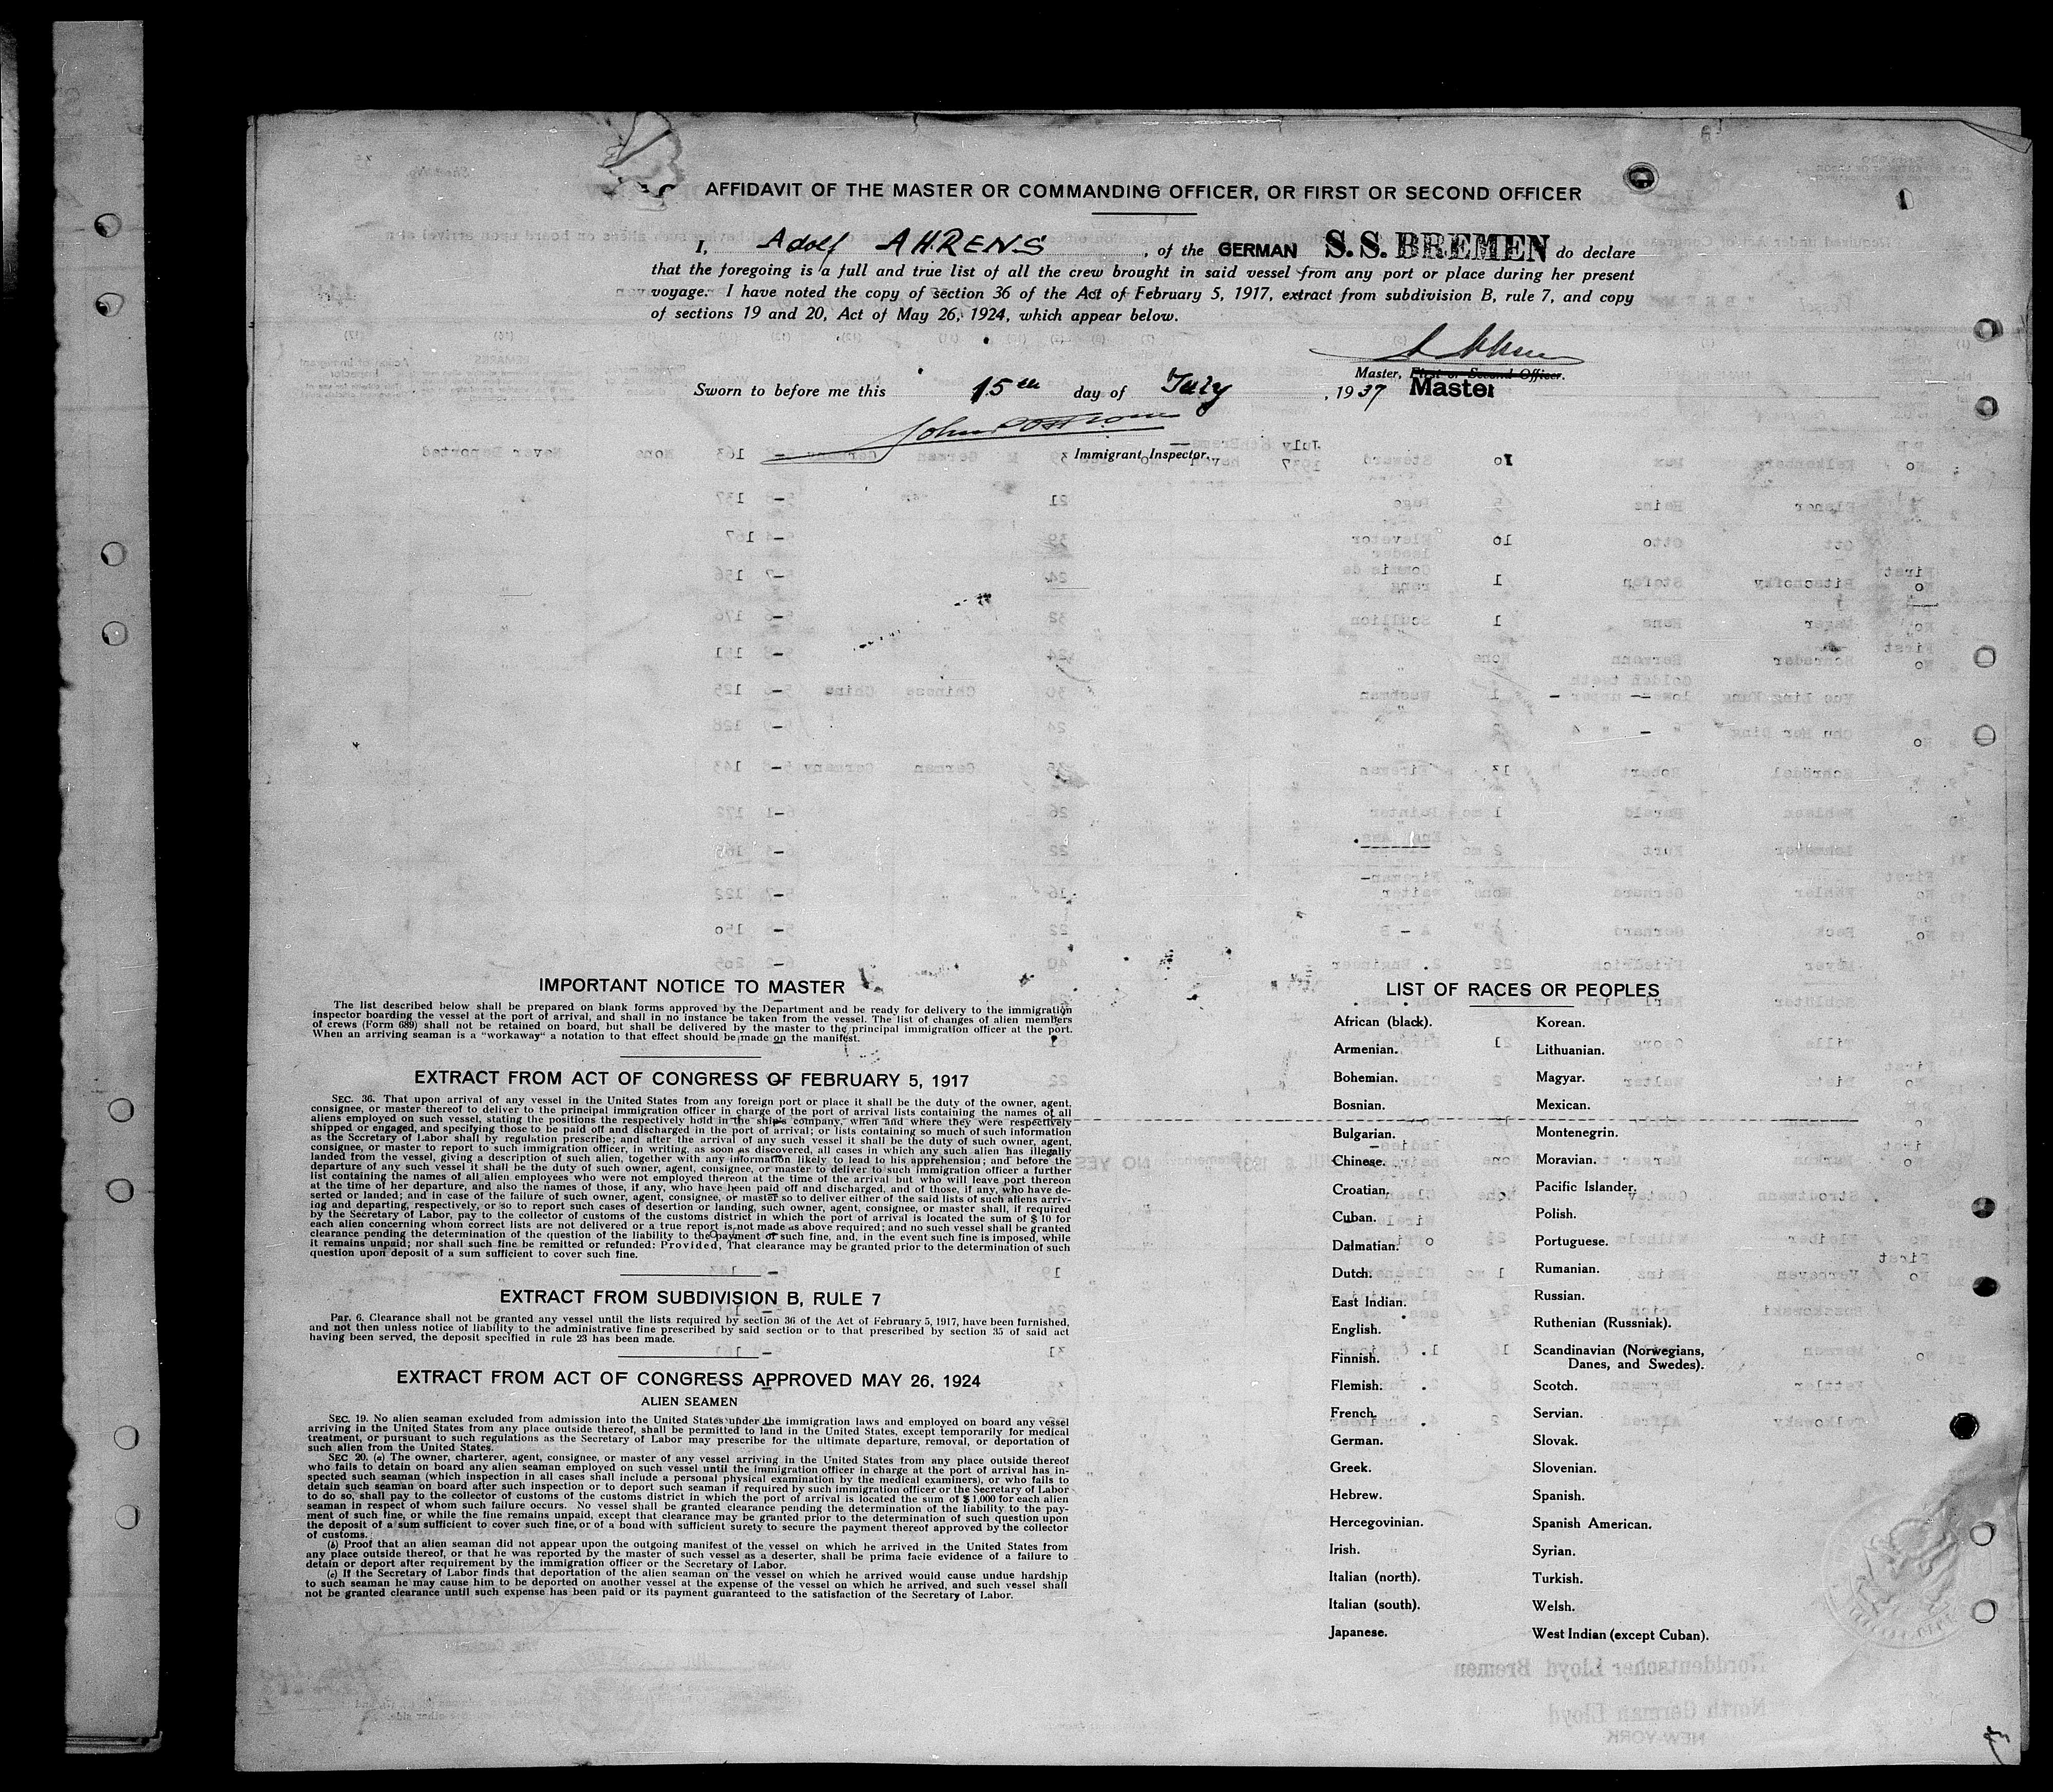 AFFIDAVIT OF THE MASTER OR COMMANDING OFFICER, OR FIRST OR SECOND OFFICER
I, Adolf AHRENS, of the GERMAN S. S. BREMEN do declare
that the foregoing is a full and true list of all the crew brought in said vessel from any port or place during her present
voyage. I have noted the copy of section 36 of the Act of February 5, 1917, extract from subdivision B, rule 7, and copy
of sections 19 and 20, Act of May 26, 1924, which appear below.
Master, First or Second Officer.
Sworn to before me this 15th day of July, 1937 Master
Immigrant Inspector.
IMPORTANT NOTICE TO MASTER
The list described below shall be prepared on blank forms approved by the Department and be ready for delivery to the immigration
inspector boarding the vessel at the port of arrival, and shall in no instance be taken from the vessel. The list of changes of alien members
of crews (Form 689) shall not be retained on board, but shall be delivered by the master to the principal immigration officer at the port.
When an arriving seaman is a "workaway" a notation to that effect should be made on the manifest.
EXTRACT FROM ACT OF CONGRESS OF FEBRUARY 5, 1917
SEC. 36. That upon arrival of any vessel in the United States from any foreign port or place it shall be the duty of the owner, agent,
consignee, or master thereof to deliver to the principal immigration officer in charge of the port of arrival lists containing the names of all
aliens employed on such vessel, stating the positions the respectively hold in the ship's company, when and where they were respectively
shipped or engaged, and specifying those to be paid off and discharged in the port of arrival; or lists containing so much of such information
as the Secretary of Labor shall by regulation prescribe; and after the arrival of any such vessel it shall be the duty of such owner, agent,
consignee, or master to report to such immigration officer, in writing, as soon as discovered, all cases in which any such alien has illegally
landed from the vessel, giving a description of such alien, together with any information likely to lead to his apprehension; and before the
departure of any such vessel it shall be the duty of such owner, agent, consignee, or master to deliver to such immigration officer a further
list containing the names of all alien employees who were not employed thereon at the time of the arrival but who will leave port thereon
at the time of her departure, and also the names of those, if any, who have been paid off and discharged, and of those, if any, who have de-
serted or landed; and in case of the failure of such owner, agent, consignee, or master so to deliver either of the said lists of such aliens arriv-
ing and departing, respectively, or so to report such cases of desertion or landing, such owner, agent, consignee, or master shall, if required
by the Secretary of Labor, pay to the collector of customs of the customs district in which the port of arrival is located the sum of $ 10 for
each alien concerning whom correct lists are not delivered or a true report is not made as above required; and no such vessel shall be granted
clearance pending the determination of the question of the liability to the payment of such fine, and, in the event such fine is imposed, while
it remains unpaid; nor shall such fine be remitted or refunded: Provided, That clearance may be granted prior to the determination of such
question upon deposit of a sum sufficient to cover such fine.
EXTRACT FROM SUBDIVISION B, RULE 7
Par. 6. Clearance shall not be granted any vessel until the lists required by section 36 of the Act of February 5, 1917, have been furnished,
and not then unless notice of liability to the administrative fine prescribed by said section or to that prescribed by section 35 of said act
having been served, the deposit specified in rule 23 has been made.
EXTRACT FROM ACT OF CONGRESS APPROVED MAY 26, 1924
ALIEN SEAMEN
SEC. 19. No alien seaman excluded from admission into the United States under the immigration laws and employed on board any vessel
arriving in the United States from any place outside thereof, shall be permitted to land in the United States, except temporarily for medical
treatment, or pursuant to such regulations as the Secretary of Labor may prescribe for the ultimate departure, removal, or deportation of
such alien from the United States.
SEC 20. (a) The owner, charterer, agent, consignee, or master of any vessel arriving in the United States from any place outside thereof
who fails to detain on board any alien seaman employed on such vessel until the immigration officer in charge at the port of arrival has in-
spected such seaman (which inspection in all cases shall include a personal physical examination by the medical examiners), or who fails to
detain such seaman on board after such inspection or to deport such seaman if required by such immigration officer or the Secretary of Labor
to do so, shall pay to the collector of customs of the customs district in which the port of arrival is located the sum of $ 1,000 for each alien
seaman in respect of whom such failure occurs. No vessel shall be granted clearance pending the determination of the liability to the pay-
ment of such fine, or while the fine remains unpaid, except that clearance may be granted prior to the determination of such question upon
the deposit of a sum sufficient to cover such fine, or of a bond with sufficient surety to secure the payment thereof approved by the collector
of customs.
(b) Proof that an alien seaman did not appear upon the outgoing manifest of the vessel on which he arrived in the United States from
any place outside thereof, or that he was reported by the master of such vessel as a deserter, shall be prima facie evidence of a failure to
detain or deport after requirement by the immigration officer or the Secretary of Labor.
(c) If the Secretary of Labor finds that deportation of the alien seaman on the vessel on which he arrived would cause undue hardship
to such seaman he may cause him to be deported on another vessel at the expense of the vessel on which he arrived, and such vessel shall
not be granted clearance until such expense has been paid or its payment guaranteed to the satisfaction of the Secretary of Labor.
LIST OF RACES OR PEOPLES
African (black).
Armenian.
Bohemian.
Bosnian.
Bulgarian.
Chinese.
Croatian.
Cuban.
Dalmatian.
Dutch.
East Indian.
English.
Finnish.
Flemish.
French.
German.
Greek.
Hebrew.
Hercegovinian.
Irish.
Italian (north).
Italian (south).
Japanese.
Korean.
Lithuanian.
Magyar.
Mexican.
Montenegrin.
Moravian.
Pacific Islander.
Polish.
Portuguese.
Rumanian.
Russian.
Ruthenian (Russniak).
Scandinavian (Norwegians,
Danes, and Swedes).
Scotch.
Servian.
Slovak.
Slovenian.
Spanish.
Spanish American.
Syrian.
Turkish.
Welsh.
West Indian (except Cuban).